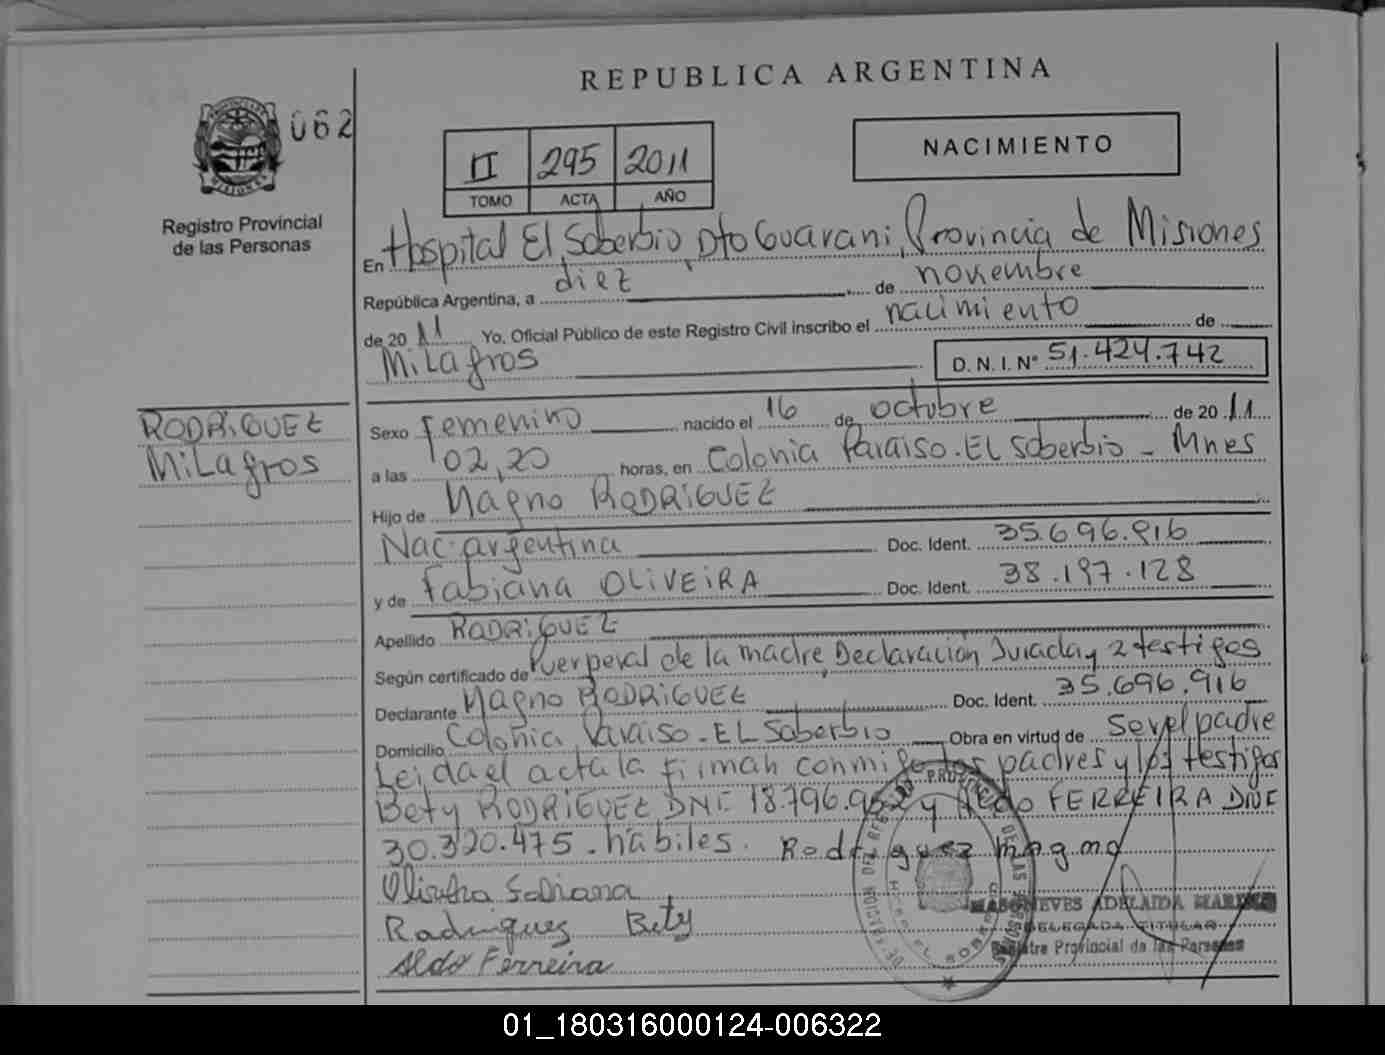 REPUBLICA ARGENTINA
062
II 295 2011
TOMO ACTA AÑO
NACIMIENTO
Registro Provincial
de las Personas
En Hospital El Soberbio, Dto Guarani, Provincia de Misiones
República Argentina, a diez de noviembre
de 2011 Yo, Oficial Público de este Registro Civil inscribo el nacimiento de
Milagros D.N.I. Nº 51.424.742
RODRIGUEZ
Milagros
Sexo femenino nacido el 16 de octubre de 2011
a las 02,20 horas, en Colonia Paraiso. EL Soberbio - Mnes
Hijo de Magno RODRIGUEZ
Nac. argentina Doc. Ident. 35.696.916
y de Fabiana OLIVEIRA Doc. Ident. 38.197.128
Apellido RODRIGUEZ
Según certificado de Puerperal de la madre, Declaración Jurada y 2 testigos
Declarante Magno RODRIGUEZ Doc. Ident. 35.696.916
Domicilio Colonia Paraiso - EL Soberbio Obra en virtud de ser el padre
Leida el acta la firman conmigo los padres y los testigos
Bety RODRIGUEZ DNI 18.796.952 y Aldo FERREIRA DNI
30.320.475 - habiles. Rodriguez magno
Oliveira Fabiana
Rodriguez Bety
Aldo Ferreira
NEVES ADELAIDA
DELEGADA TITULAR
Registro Provincial de las Personas
01_180316000124-006322